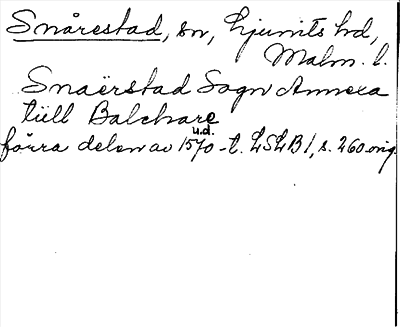 Snårestad, sn, Ljunits hd,
Malm. l.
Snaërstad Sogn Annexa
till Balckare
u.d.
förra delen av 1570-t. LSLB 1, s. 260 orig.